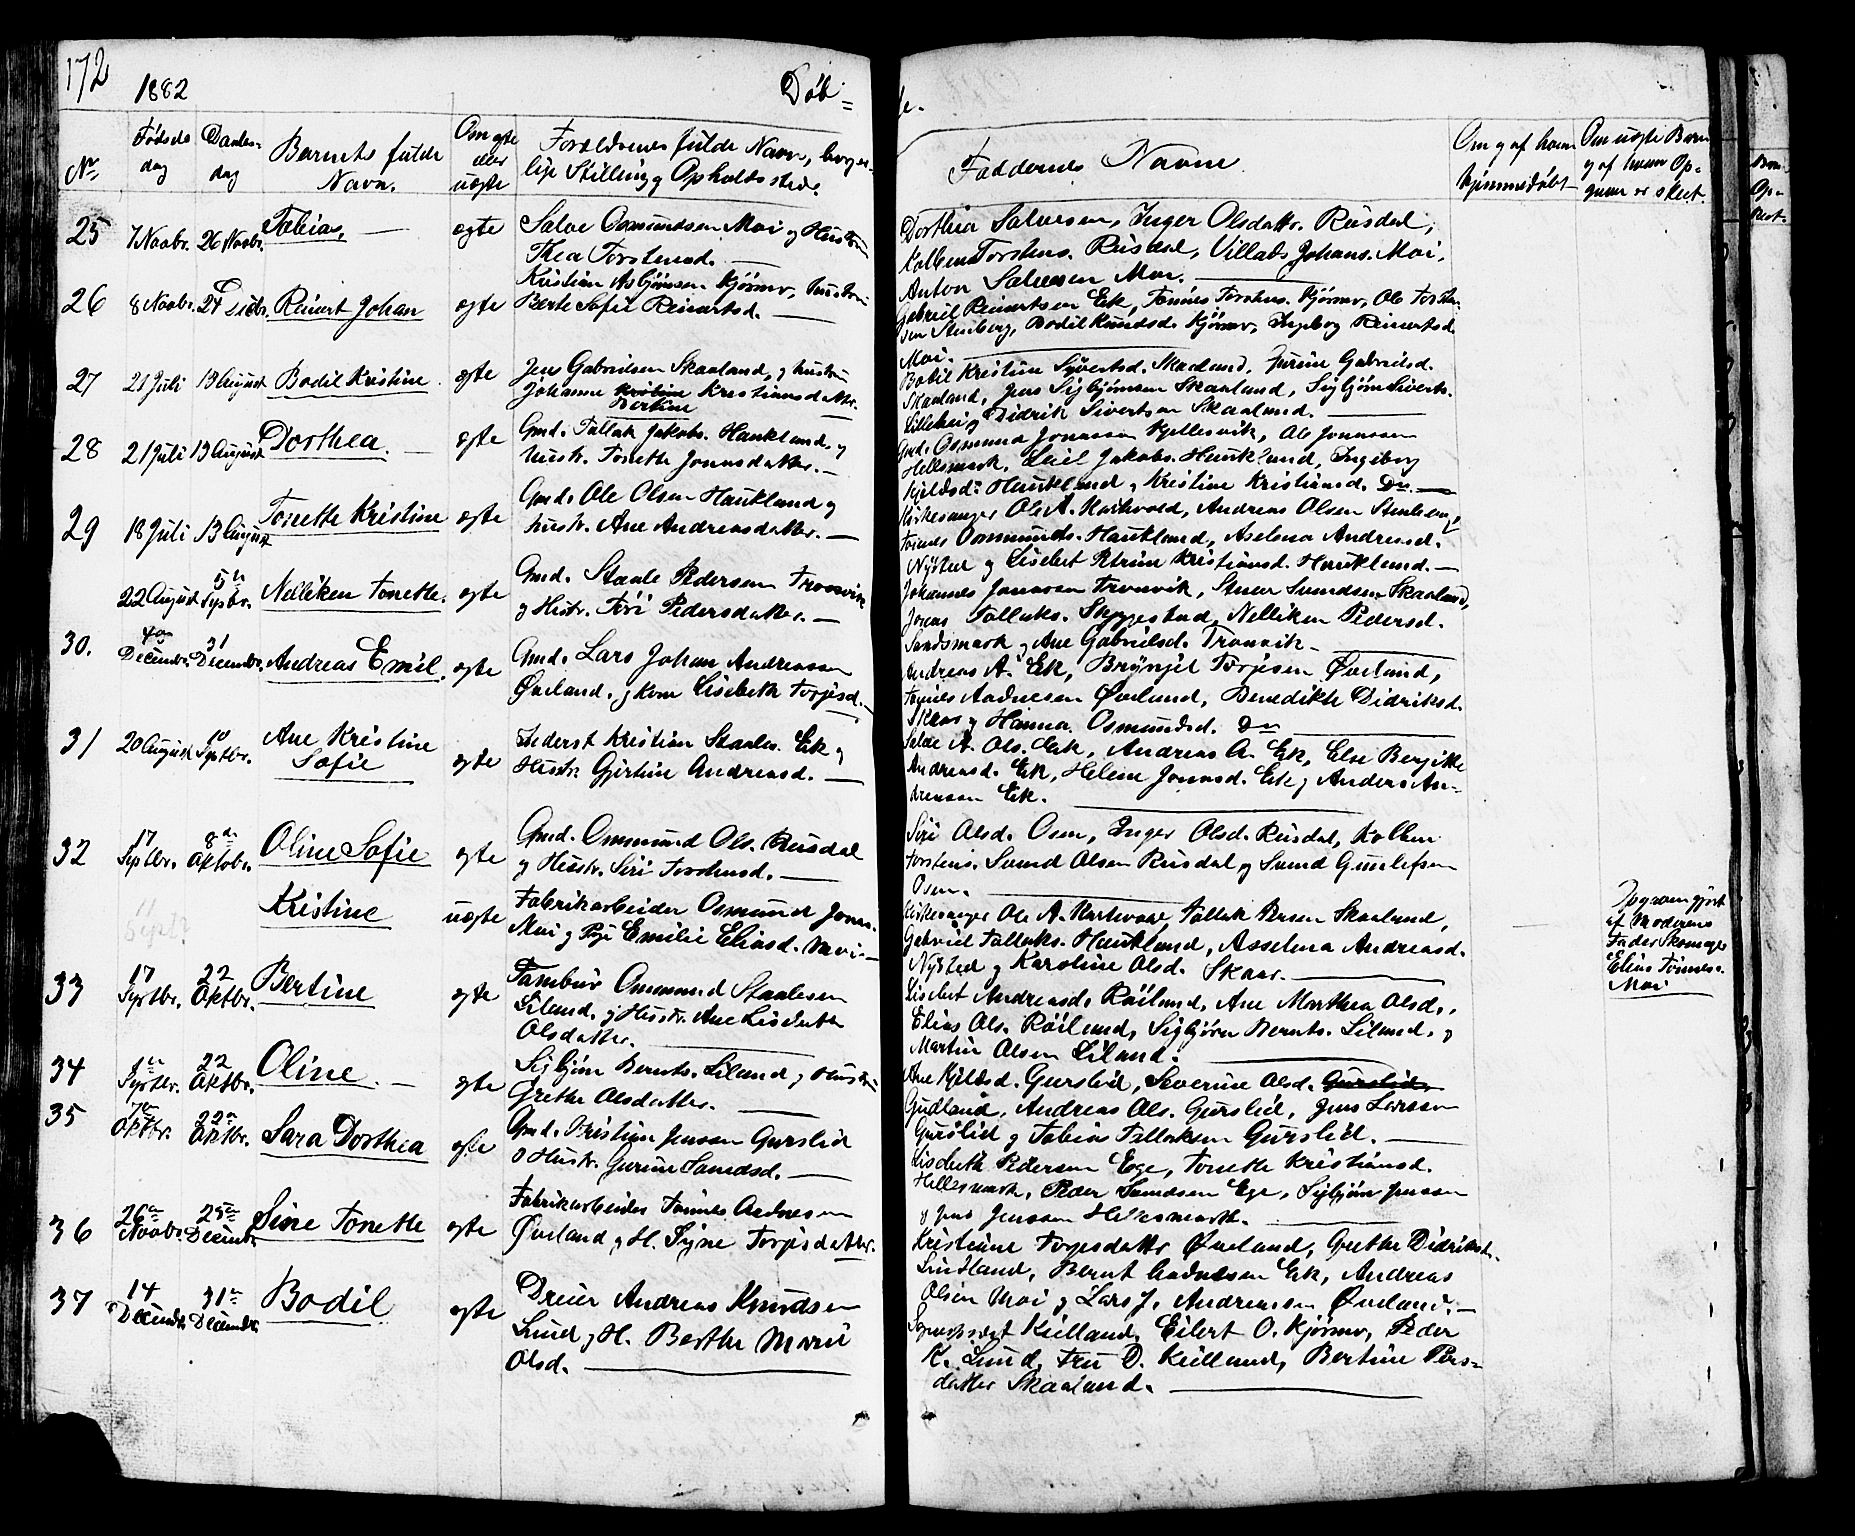 172
1882
Døb=
te.
No
Fødsels
dag
Daabs-
dag
Barnets fulde
Navn.
Om egte
eller
uegte
Forældrenes fulde Navn, borger-
lige Stilling og Opholdssted.
Faddernes Navne
Om og af hvem
hjemmedøbt
Om uegte Barn
og af hvem Op-
givn er skeet.
25
7 Novbr.
26 Novbr.
Tobias,
egte
Salve Osmundsen Moi og Hustru
Thea Torstensd.
Dorthea Salvesen, Inger Olsdattr. Rusdal,
Torstens. Rusdal, Villads Johans. Moi,
Anton Salvesen Moi.
26
8 Novbr.
24 Decbr.
Reinert Johan
egte
Kristian Asbjørnsen Kjørmo, Hustru
Berte Sofie Reinertsd.
Gabriel Reinertsen Eek, Tønnes Torstens. Kjørmo, Ole Torsten-
sen Stenberg, Bodil Knudsd. Kjørmo, Ingeborg Reinertsd.
Moi.
27
21 Juli
13 August
Bodil Kristine
egte
Jens Gabrielsen Skaaland, og Hustru
Johanne Kristine Kristiansdattr.
Bertine
Bodil Kristine Syvertsd. Skaaland, Gabrielsd.
Skaaland, Jens Sigbjørnsen Skaaland, Sigbjørn Siverts.
og Didrik Sivertsen Skaaland.
28
21 Juli
13 August
Dorthea.
egte
Gmd. Tallak Jakobs. Haukland og
Hustr. Tonette Jonasdatter.
Gmd. Osmund Jonassen Kjellesvik, Ole Jonassen
Hellesmark, Jakobs. Haukland, Ingeborg
Haukland og Kristine Kristiansd. Do.
29
18 Juli
13 August
Tonette Kristine
egte
Gmd. Ole Olsen Haukland og
Hustr. Ane Andreasdatter.
Kirkesanger Ole A. Andreas Olsen Stenberg,
Tønnes Osmunds. Haukland, Aselena Andreasd.
Nysted og Lisebet Petrine Kristiansd. Haukland.
22 August
5te Septbr.
Nelliken Tonette.
egte
Gmd. Staale Pedersen Tronsvik
og Hustr. Pedersdatter.
Johannes Jonassen Tronsvik, Svendsen Skaaland,
Jonas Tallaks. Skyggestad, Nelliken Pedersd.
Sandsmark og Ane Gabrielsd. Tronsvik
30.
4de
Decembr.
31
Decembr.
Andreas Emil.
egte
Gmd. Lars Johan Andreassen
Øveland. og Kone Lisebeth Torjusd.
Andreas A. Eek, Torjesen Øveland,
Tønnes Aadnesen Øveland, Benedikte Didriksd.
Skaar og Hanna Osmundsd. Do
31
20 August
10
Septbr.
Ane Kristine
Sofie
egte
Kristian Staales. Eek og
Hustr. Gjertine Andreasd.
Salve A. Ols. Eek, Andreas A. Eek, Else Bergitte
Andreasd. Eek, Helene Jonasd. Eek og Anders An-
dreassen Eek.
32
17
Septbr.
8de
Oktobr.
Oline Sofie
egte
Gmd. Osmund Ols. Rusdal
og Hustr. Siri Torstensd.
Siri Olsd. Osen, Inger Olsd. Rusdal,
Torstens. Svend Olsen Rusdal og Svend Gunlefsen
Osen.
11
Septb
Kristine
uegte
Fabrikarbeider Osmund Jonas.
Moi og Pige Emilie Eliasd. Moi
Kirkesanger Ole A. Tallak Skaaland,
Gabriel Tallaks. Haukland, Asselena Andreasd.
Nysted og Karoline Olsd. Skaar.
af Moderens
Fader Skomager
Elias Tønnes.
Moi
33
17
Septbr.
22
Oktbr.
Bertine
egte
Tambur Osmund Staalesen
Liland, og Hustr. Ane Lisebeth
Olsdatter.
Lisebet Andreasd. Røiland, Ane Marthea Olsd.,
Elias Ols. Røiland, Sigbjørn Bernts. Liland, og
Martin Olsen Liland.
34
Septbr.
22
Oktbr.
Oline.
egte
Sigbjørn Bernts. Liland og Hustru
Grethe Olsdatter.
Ane Gurslid, Severine Olsd. Gurslid,
Gudland, Andreas Ols. Gurslid, Jens Larssen
Gurslid og Tobias Tallaksen Gurslid.
35
7de
Oktbr.
22de
Oktbr.
Sara Dorthea
egte
Gmd. Kristian Jensen Gurslid
o Hustr. Gurine Svendsd.
Lisebeth Pedersen Ege, Tonette Kristiansd.
Hellesmark, Peder Svendsen Ege, Sigbjørn Jenssen
o Jens Jenssen Hellesmark.
36
26de
Novbr.
25de
Decembr.
Sine Tonette
egte
Fabrikarbeider Tønnes Aadnesen
Øveland og H. Signe Torjusdatter.
Kristiane Torjesdattr Øveland, Grethe Didriksd.
Lindland, Bernt Aadnesen Eek, Andreas
Olsen Moi og Lars J. Andreassen Øveland.
37
14
Decembr.
31te
Decembr.
Bodil
egte
Dreier Andreas Knudsen
Lund og H. Berthe Marie
Olsd.
Kielland, Eilert O. Kjørmo, Peder
K. Lund, Fru D. Kielland, Bertine Pers-
datter Skaaland.